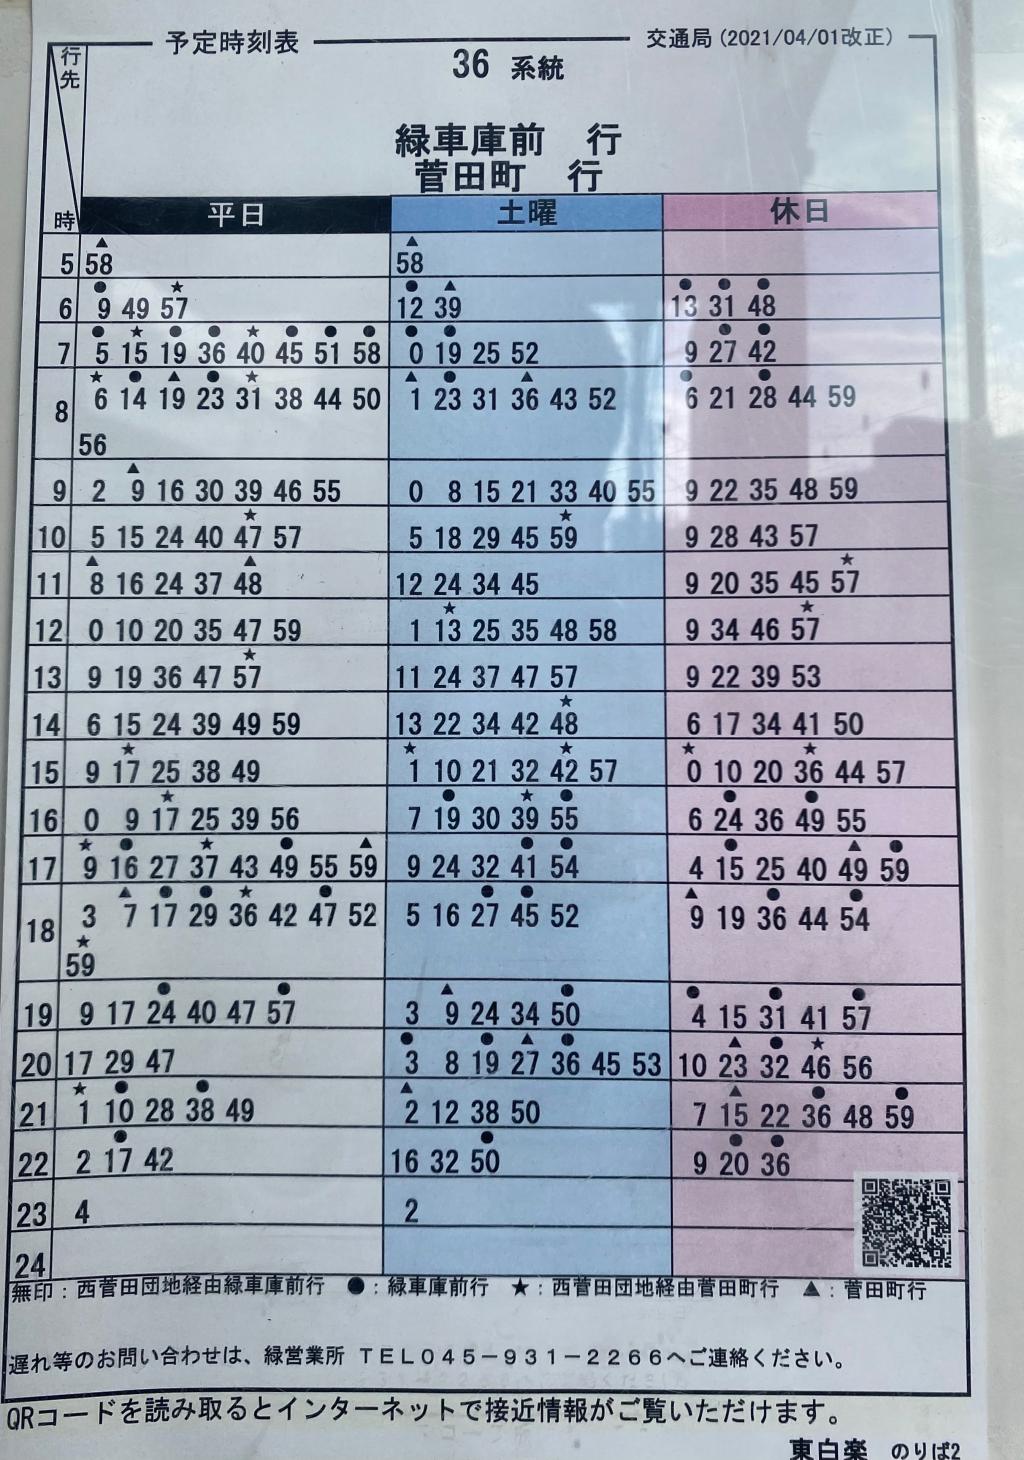 予定時刻表
交通局 (2021/04/01改正)
行先
36 系統
緑車庫前 行
菅田町 行
時 平日 土曜 休日
5 ▲58 ▲58
6 ●9 49 ★57 ●12 ▲39 ●13 ●31 ●48
7 ●5 ★15 ●19 ●36 ★40 ●45 ●51 ●58 ●0 ●19 25 52 9 ●27 ●42
8 ★6 ●14 ▲19 ●23 ★31 38 44 50 ▲1 ●23 31 ▲36 43 52 ●6 21 ●28 44 59
56
9 2 ▲9 16 30 39 46 55 0 8 15 21 33 40 55 9 22 35 48 59
10 5 15 24 40 ★47 57 5 18 29 45 ★59 9 28 43 57
11 ▲8 16 24 37 ▲48 12 24 34 45 9 20 35 45 ★57
12 0 10 20 35 47 59 1 ★13 25 35 48 58 9 34 46 ★57
13 9 19 36 47 ★57 11 24 37 47 57 9 22 39 53
14 6 15 24 39 49 59 13 22 34 42 ★48 6 17 34 41 50
15 9 ★17 25 38 49 ★1 10 21 32 ★42 57 ★0 10 20 ★36 44 57
16 0 9 ★17 25 39 56 7 ●19 30 ★39 ●55 6 ●24 36 ●49 55
17 ★9 ●16 27 ★37 43 ●49 55 ▲59 9 24 32 ●41 ●54 4 ●15 25 40 ▲49 ●59
18 3 ▲7 ●17 ●29 ★36 42 ●47 52 5 16 ●27 ●45 52 ▲9 19 ●36 44 ●54
★59
19 9 17 ●24 40 47 ●57 3 ▲9 24 34 ●50 ●4 15 ●31 41 ●57
20 17 29 47 ●3 8 ●19 ▲27 ●36 45 53 10 ▲23 ●32 ★46 56
21 ★1 ●10 28 ●38 49 ▲2 12 38 50 7 ▲15 22 ●36 48 ●59
22 2 ●17 42 16 32 ●50 9 ●20 ●36
23 4 2
24
無印：西菅田団地経由緑車庫前行 ●：緑車庫前行 ★：西菅田団地経由菅田町行 ▲：菅田町行
遅れ等のお問い合わせは、緑営業所 ＴＥＬ０４５－９３１－２２６６へご連絡ください。
QRコードを読み取るとインターネットで接近情報がご覧いただけます。
東白楽 のりば2